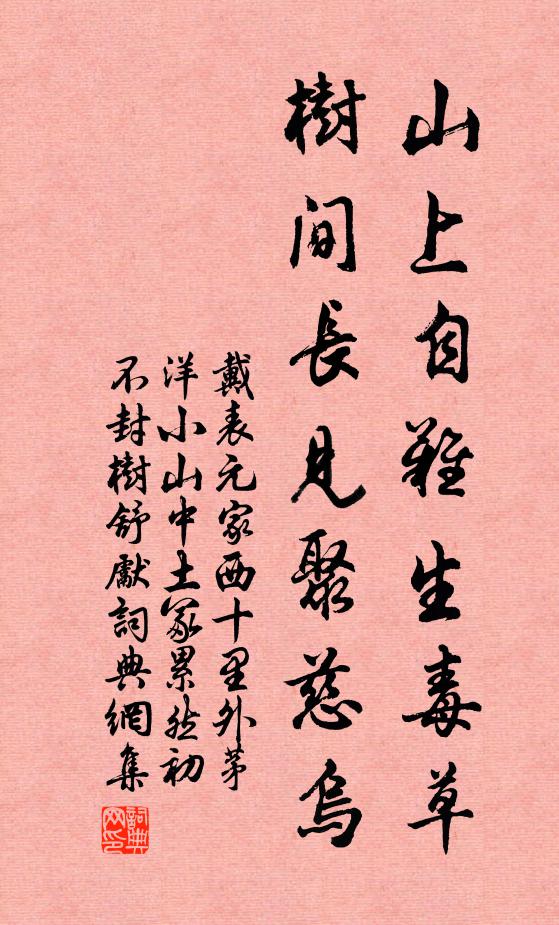 山上自難生毒草
樹間長見聚慈烏
戴表元家西十里外茅
洋小山中土冢累然初
不封樹舒獻詞典網集
詞典网印